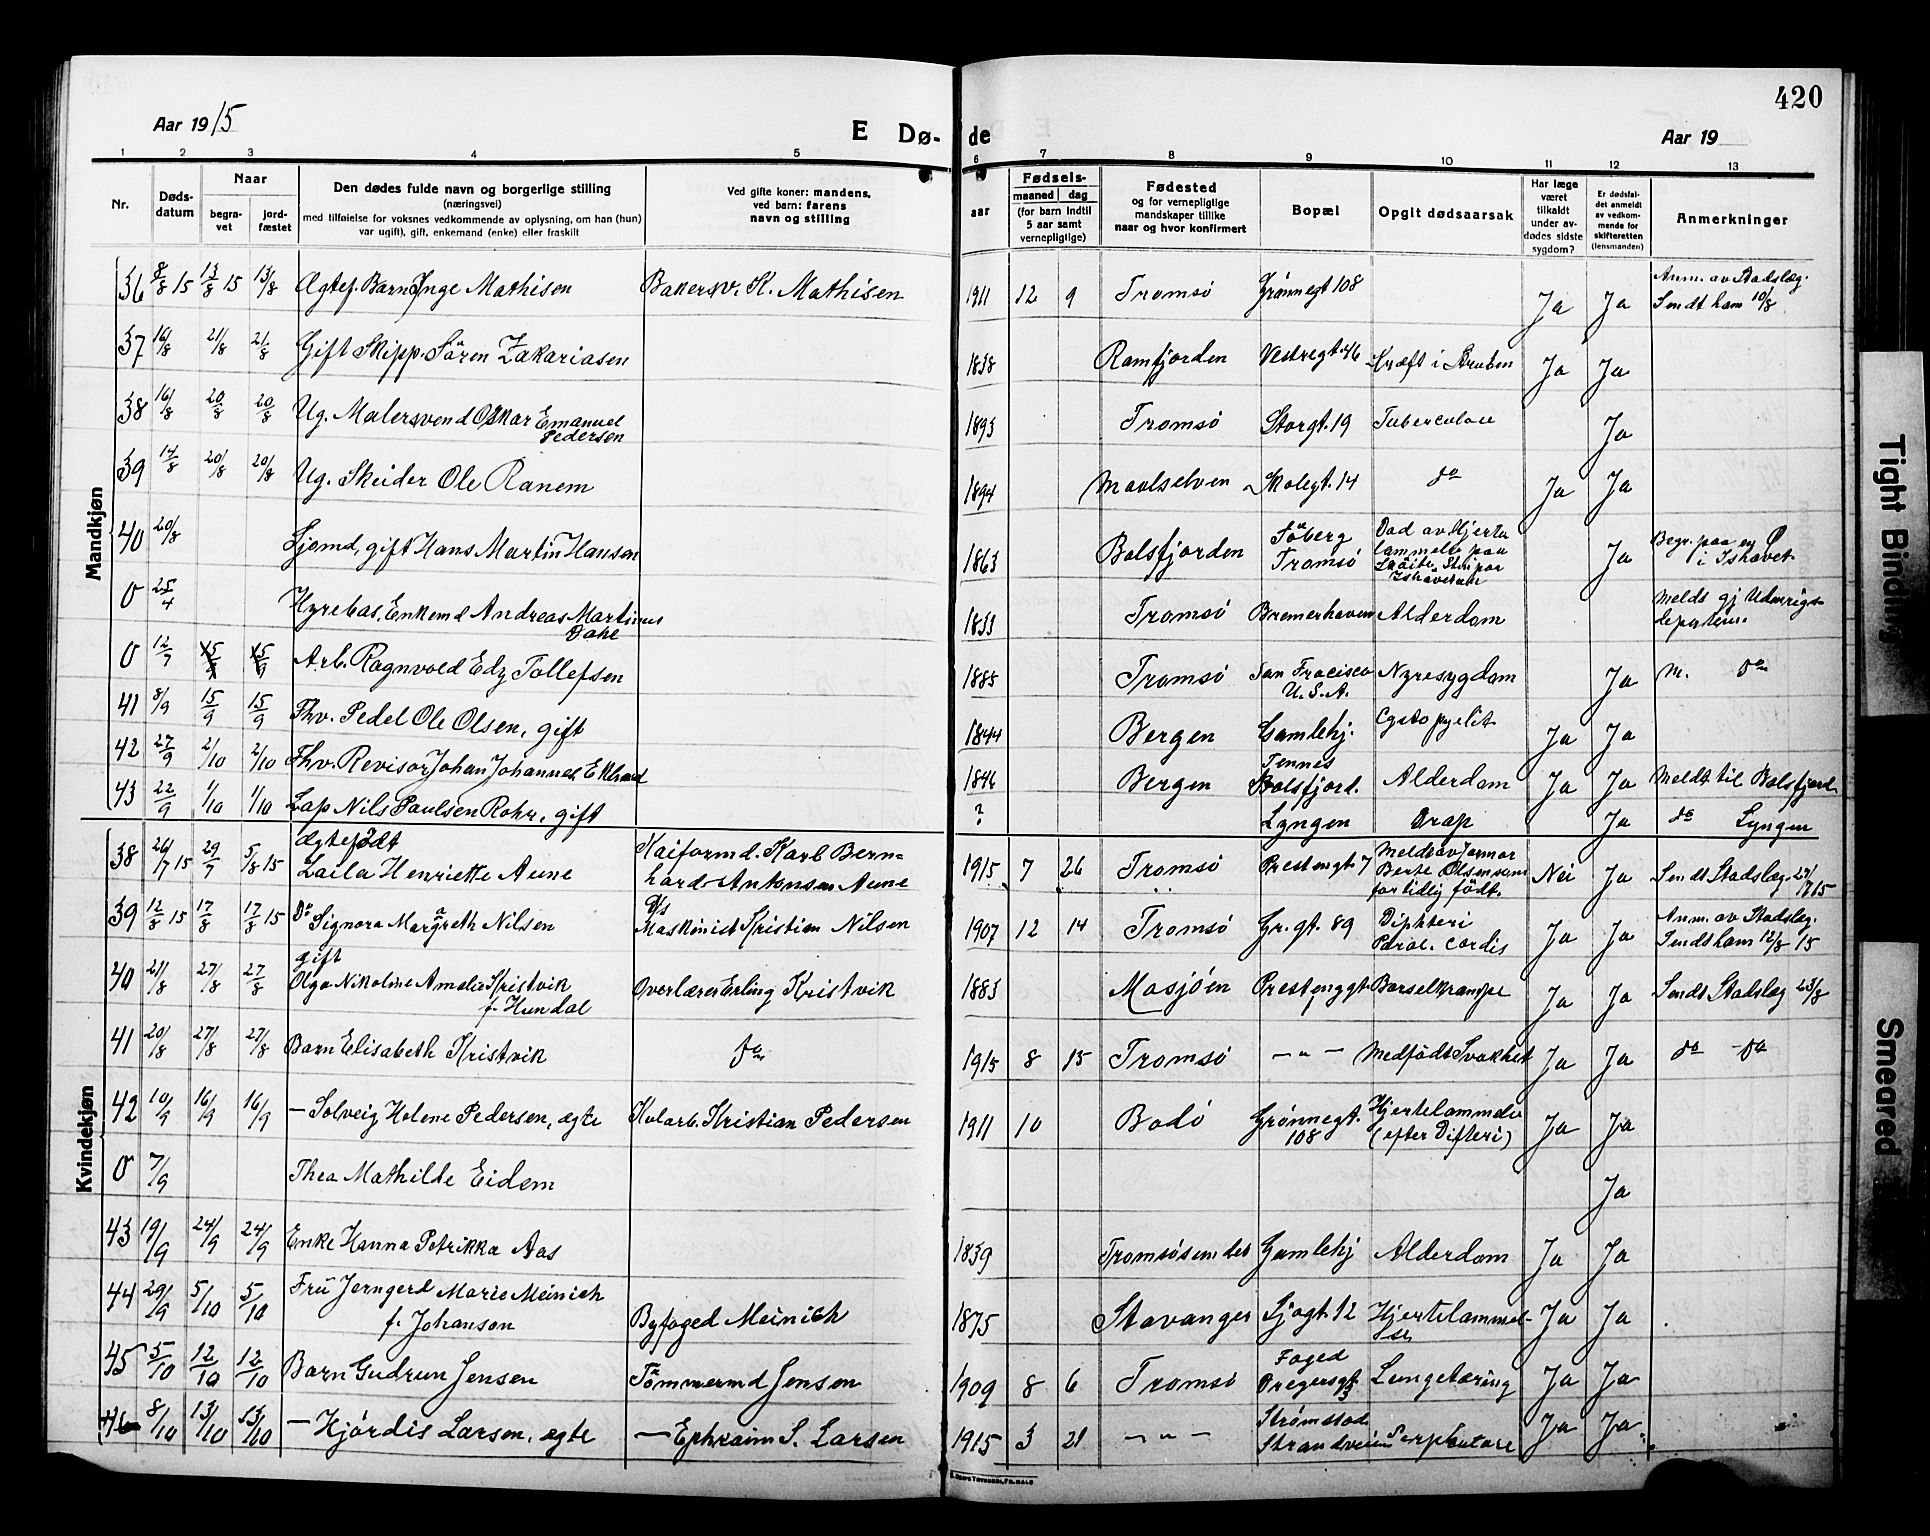 420
Aar 1915
E Dø- de
Aar 19
1 2 3 4 5 6 7 8 9 10 11 12 13
Nr.
Døds-
datum
Naar
begra-
vet
jord-
fæstet
Den dødes fulde navn og borgerlige stilling
(næringsvei)
med tilføielse for voksnes vedkommende av oplysning, om han (hun)
var ugift), gift, enkemand (enke) eller fraskilt
Ved gifte koner: mandens,
ved barn: farens
navn og stilling
aar
Fødsels-
maaned dag
(for barn indtil
5 aar samt
vernepligtige)
Fødested
og for vernepligtige
mandskaper tillike
naar og hvor konfirmert
Bopæl
Opgit dødsaarsak
Har læge
været
tilkaldt
under av-
dødes sidste
sygdom?
Er dødsfal-
det anmeldt
av vedkom-
mende for
skifteretten
(lensmanden)
Anmerkninger
Mandkjøn
36 8/8 15 13/8 15 13/8 Ægtef. Barn Inge Mathisen Bakersv. K. Mathisen 1911 12 9 Tromsø Grønnegt 108 Ja Ja Anm. av Stadslæg.
Sendt ham 10/8
37 16/8 21/8 21/8 Gift Skipp. Sören Zakariasen 1838 Ramfjorden Vestregt. 46 Kræft i Struben Ja Ja
38 16/8 20/8 20/8 Ug. Malersvend Oskar Emanuel
Pedersen 1893 Tromsø Storgt. 19 Tuberculose Ja
39 14/8 20/8 20/8 Ug. Skeider Ole Ranem 1894 Maalselven Skolegt. 14 do Ja Ja
40 20/8 Sjømd, gift Hans Martin Hansen 1863 Balsfjorden Söberg
Tromsø Død av Hjerte
lammelse paa
Ishavet Ja Begr. paa en Ø
i Ishavet
0 25/4 Hyrebas, Enkemd Andreas Martinus
Dahl 1833 Tromsø Bremerhaven Alderdom Meldt gj Udenrigs-
departem.
0 12/7 Arb. Ragnvald Edy Tollefsen 1885 Tromsø San Fracisco
U. S. A. Nyresygdom Ja M. do
41 8/9 15/9 15/9 Fhv. Pedel Ole Olsen, gift 1844 Bergen Gamlehj. Cystopyelit Ja Ja
42 27/9 2/10 2/10 Fhv. Revisor Johan Johannes Eklund 1846 Bergen Tennes
Balsfjord. Alderdom Ja Ja Meldt til Balsfjord
43 22/9 1/10 1/10 Lap Nils Paulsen Rohr, gift ? Lyngen Drap Ja do Lyngen
Kvindekjøn
38 26/7 15 29/7 5/8 15 Ægtefödt
Laila Henriette Aune Kaiformd. Karl Bern-
hard Antonsen Aune 1915 7 26 Tromsø Prestengt. 7 Meldt av Jormor
Berte Olsen som
for tidlig födt. Nei Ja Sendt Stadslæg. 27/7 15
39 12/8 15 17/8 17/8 15 Do Signora Margreth Nilsen D/s
Maskinist Kristian Nilsen 1907 12 14 Tromsø Gr. gt. 89 Diphteri
Paral. cordis Ja Ja Anm. av Stadslæg.
Sendt ham 12/8 15
40 21/8 27/8 27/8 gift
Olga Nikoline Amalie Kristvik
f. Hundal Overlærer Erling Kristvik 1883 Mosjøen Prestenggt Barselkrampe Ja Ja Sendt Stadslæg 23/8
41 20/8 27/8 27/8 Barn Elisabeth Kristvik do 1915 8 15 Tromsø — „ — Medfödt Svakhet Ja Ja do do
42 10/9 16/9 16/9 — Solveig Helene Pedersen, ægte Kularb. Kristian Pedersen 1911 10 Bodø Grønnegt.
108 Hjertelammelse
(efter Difteri) Ja Ja
0 7/9 Thea Mathilde Eidem Ja
43 19/9 24/9 24/9 Enke Hanna Petrikka Aas 1839 Tromsøsundet Gamlehj Alderdom Ja Ja
44 29/9 5/10 5/10 Fru Jerngerd Marie Meinich
f. Johansen Byfoged Meinich 1875 Stavanger Sjøgt. 12 Hjertelammel-
se Ja Ja
45 5/10 12/10 12/10 Barn Gudrun Jensen Tömmermd Jensen 1909 8 6 Tromsø Foged
Dregersgt
3 Lungetæring Ja Ja
46 8/10 13/10 13/10 — Hjördis Larsen, ægte — Ephraim S. Larsen 1915 3 21 — „ — Strømstad
Strandveien Ja Ja
Tight Binding
Smeared